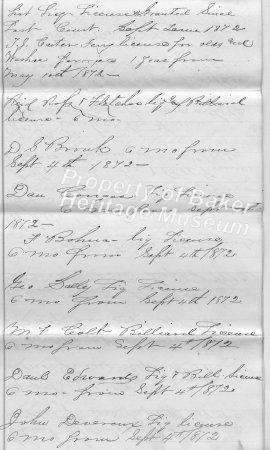 List Liq Licenses Granted Since
Last Court Sept Term 1872
T. J. Carter Ferry license for olds and
Washoe Ferries 1 year from
May 10th 1872 —
Reid Rofs & Fletcher Liq & Billiard
license - 6 mo.
D S Bronk 6 mo from
Sept 4th 1872 —
Dan Liq License
6 mo from Sept
1872 —
F Bohna - liq License
6 mo from Sept 4th 1872
Geo Sally Liq License
6 mo from Sept 4th 1872
M F Colt Billiard License
6 mo from Sept 4th 1872
Danl Edwards Liq & Bill license
6 mo - from Sept 4th 1872
John Devereux Liq license
6 mo from Sept 4th 1872
Property of Baker
Heritage Museum